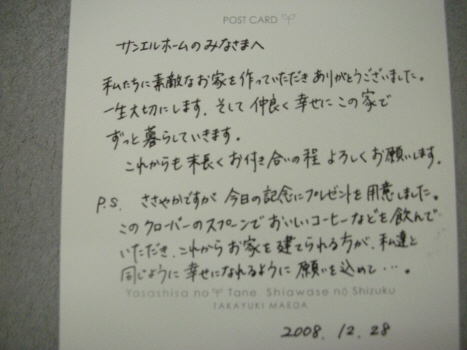 POST CARD
サンエルホームのみなさまへ
私たちに素敵なお家を作っていただきありがとうございました。
一生大切にします。そして仲良く幸せにこの家で
ずっと暮らしていきます。
これからも末長くお付き合いの程 よろしくお願いします。
P.S. ささやかですが 今日の記念にプレゼントを用意しました。
このクローバーのスプーンでおいしいコーヒーなどを飲んで
いただき、これからお家を建てられる方が、私達と
同じように幸せになれるように 願いを込めて…。
Yasashisa no Tane Shiawase no Shizuku
TAKAYUKI MAEDA
2008.12.28